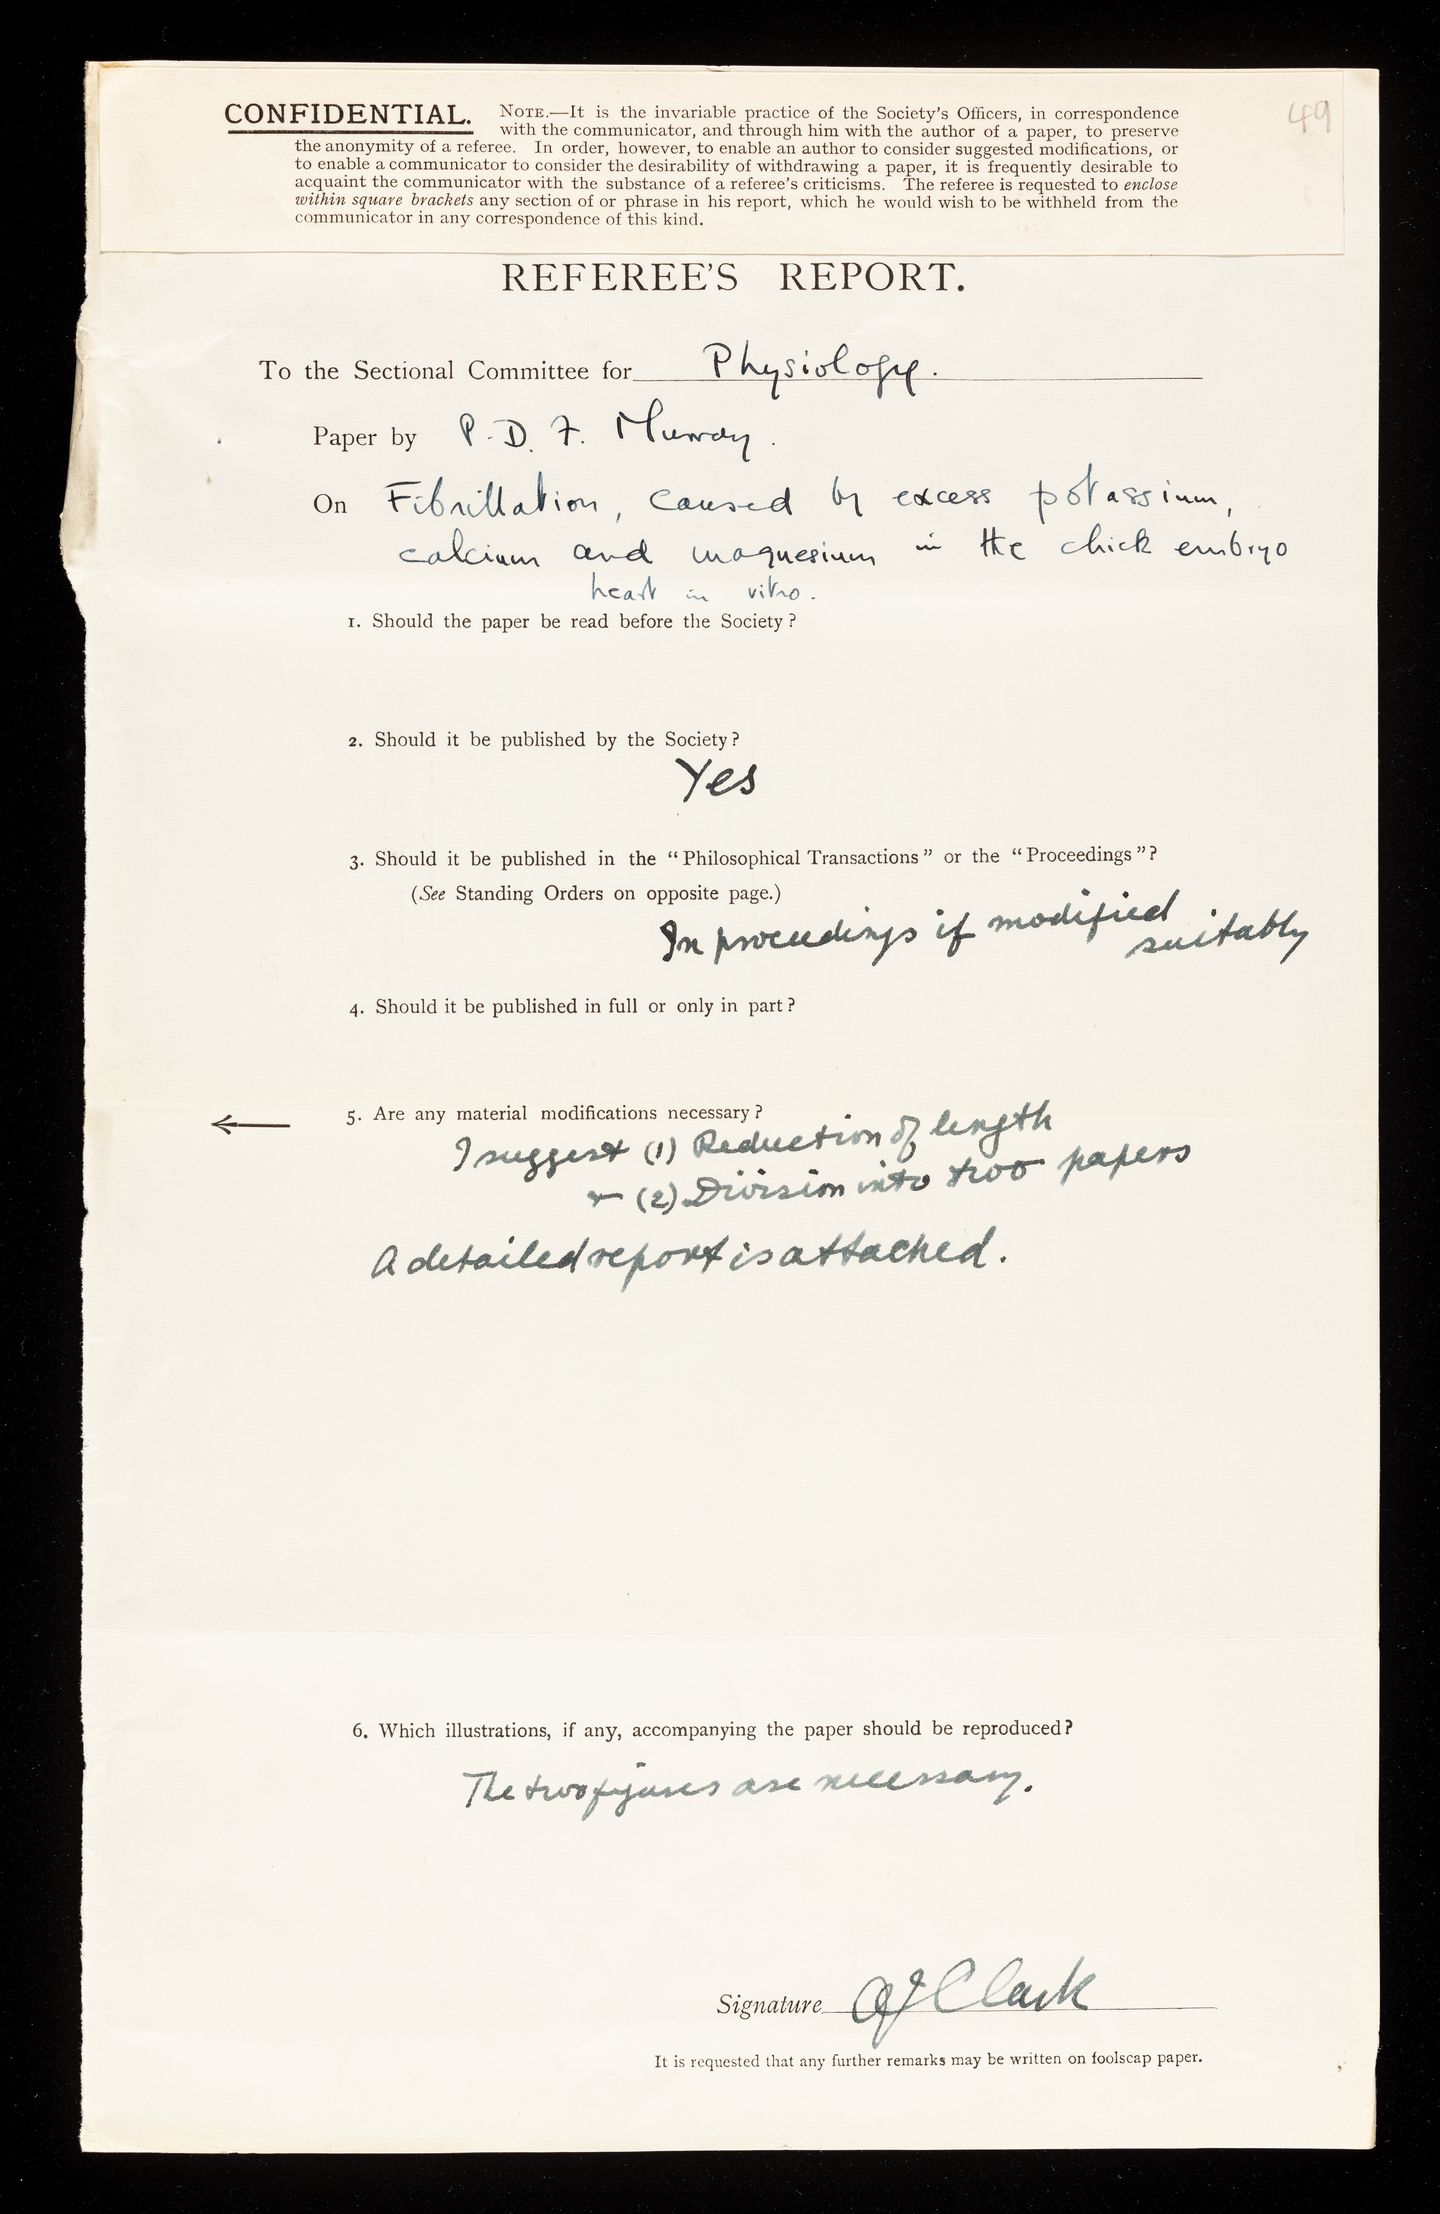 49
CONFIDENTIAL. NOTE.—It is the invariable practice of the Society's Officers, in correspondence
with the communicator, and through him with the author of a paper, to preserve
the anonymity of a referee. In order, however, to enable an author to consider suggested modifications, or
to enable a communicator to consider the desirability of withdrawing a paper, it is frequently desirable to
acquaint the communicator with the substance of a referee's criticisms. The referee is requested to enclose
within square brackets any section of or phrase in his report, which he would wish to be withheld from the
communicator in any correspondence of this kind.
REFEREE'S REPORT.
To the Sectional Committee for Physiology.
Paper by P. D. F. Murray.
On Fibrillation, caused by excess potassium,
calcium and magnesium in the chick embryo
heart in vitro.
1. Should the paper be read before the Society?
2. Should it be published by the Society?
Yes
3. Should it be published in the "Philosophical Transactions" or the "Proceedings"?
(See Standing Orders on opposite page.)
In proceedings if modified
suitably
4. Should it be published in full or only in part?
← 5. Are any material modifications necessary?
I suggest (1) Reduction of length
+ (2) Division into two papers
A detailed report is attached.
6. Which illustrations, if any, accompanying the paper should be reproduced?
The two figures are necessary.
Signature AJ Clark
It is requested that any further remarks may be written on foolscap paper.